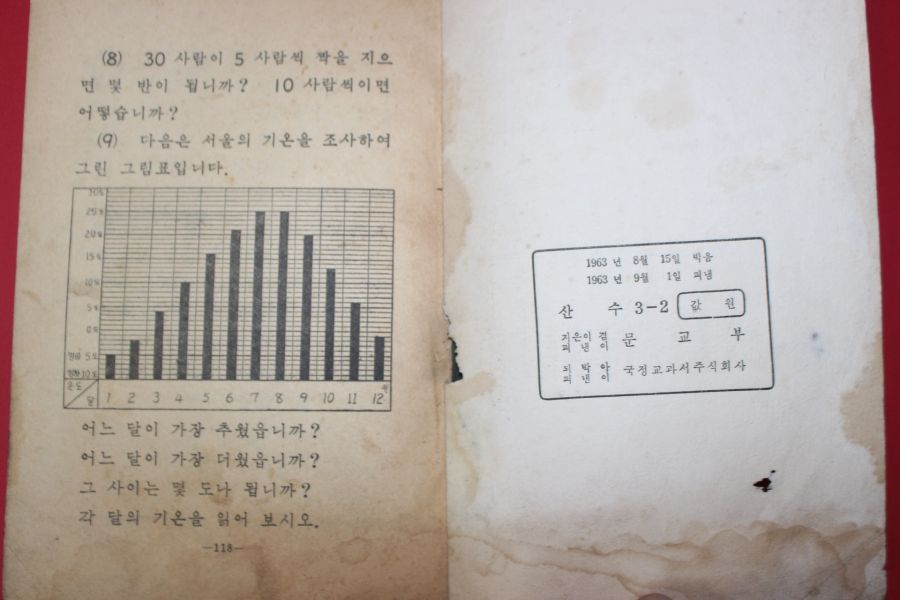 (8) 30 사람이 5 사람씩 짝을 지으
면 몇 반이 됩니까? 10 사람씩이면
어떻습니까?
(9) 다음은 서울의 기온을 조사하여
그린 그림표입니다.
30도
25도
20도
15도
10도
5도
0도
영하 5도
영하 10도
온도
달
1 2 3 4 5 6 7 8 9 10 11 12
어느 달이 가장 추웠읍니까?
어느 달이 가장 더웠읍니까?
그 사이는 몇 도나 됩니까?
각 달의 기온을 읽어 보시오.
—118—
1963 년 8월 15일 박음
1963 년 9월 1일 펴냄
산 수 3-2 값 원
지은이 겸
펴낸이 문 교 부
되박아
펴낸이 국정교과서주식회사